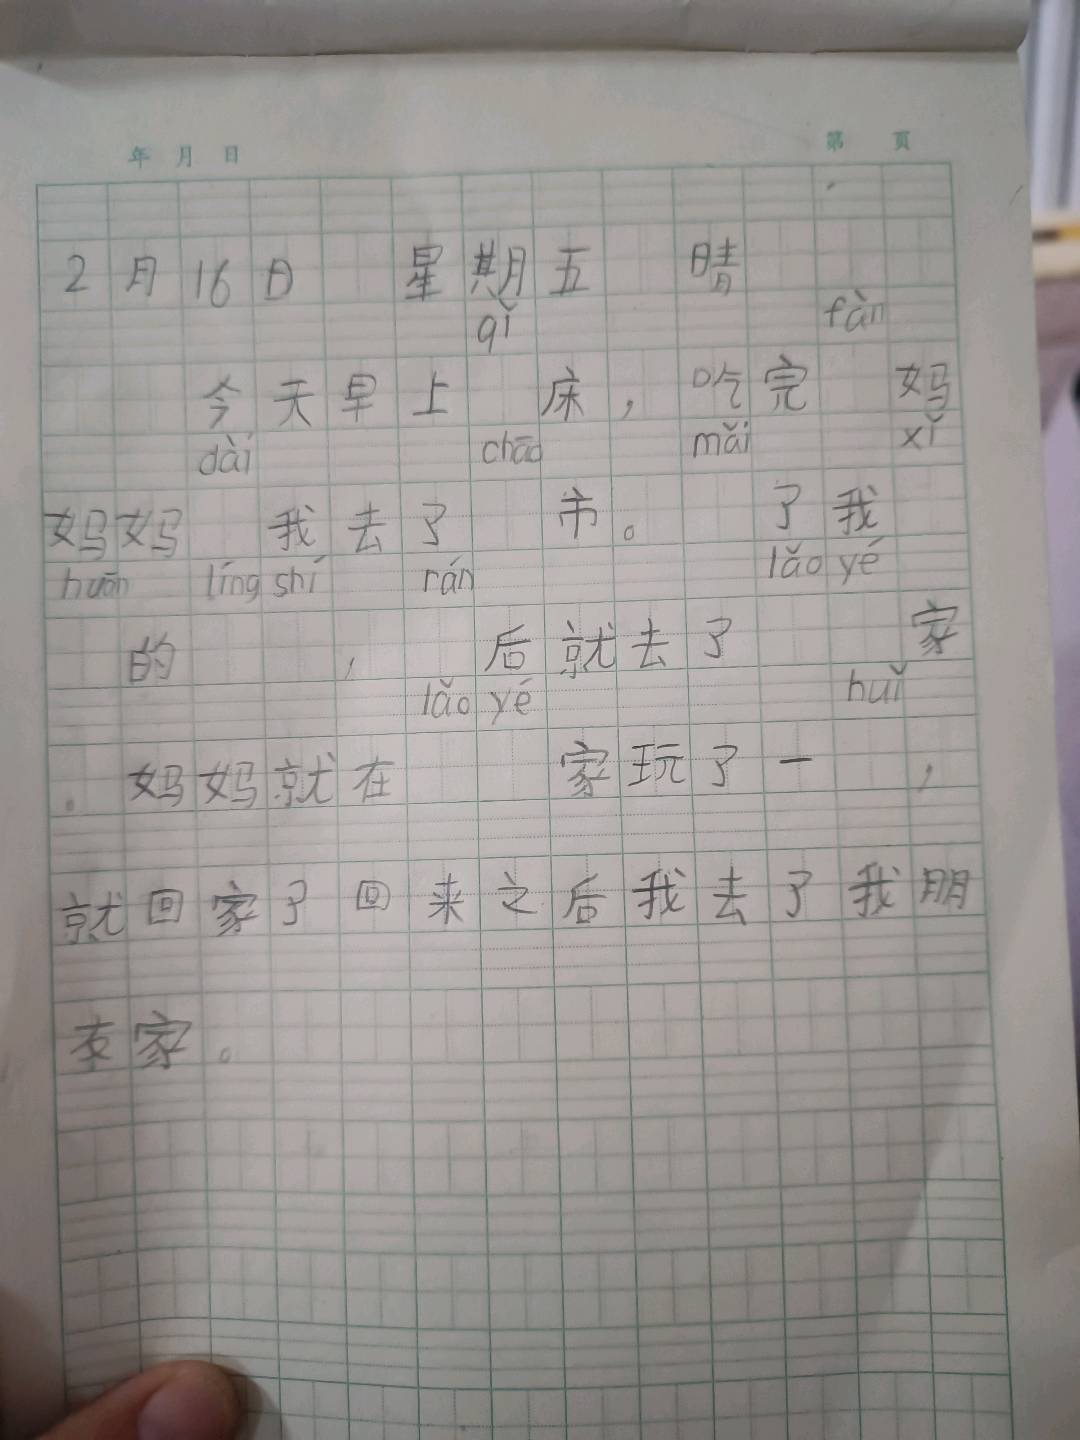 年 月 日 第 页
2月16日 星期五 晴
qǐ fàn
今天早上 床，吃完 妈
dài chāo mǎi xǐ
妈妈 我去了 市。 了我
huān língshí rán lǎo yé
的 ， 后就去了 家
lǎo yé huǐ
。妈妈就在 家玩了一 ，
就回家了回来之后我去了我朋
友家。